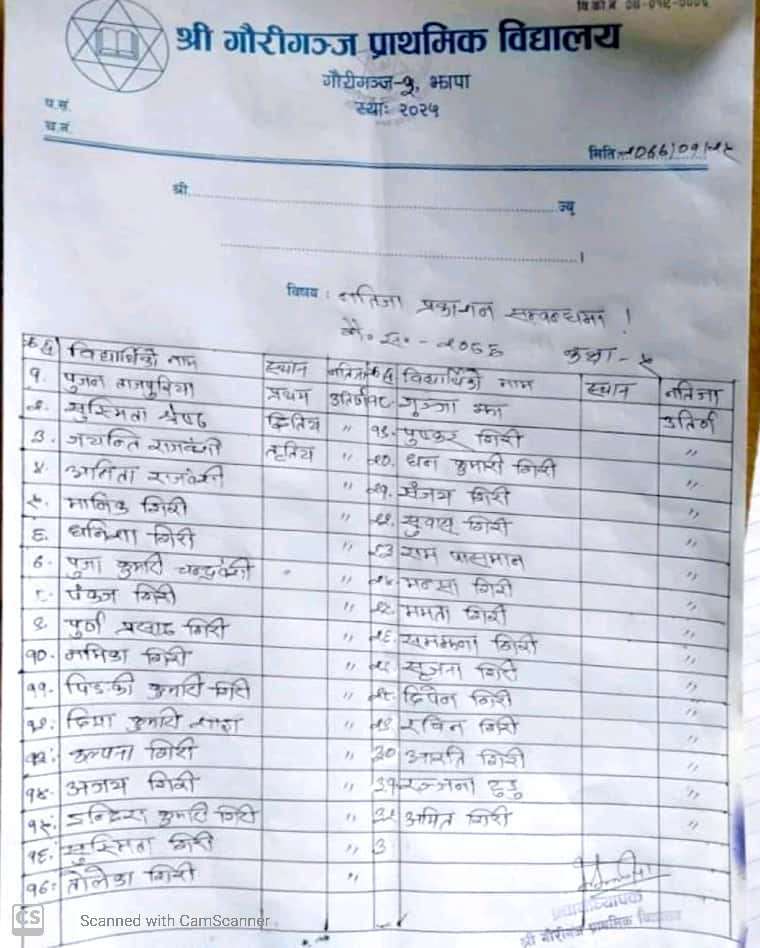 श्री गौरीगञ्ज प्राथमिक विद्यालय
गौरीगञ्ज-५, झापा
स्थाः २०२५
प.सं.
च.नं.
मितिः
श्री ज्यु
।
विषय : नतिजा प्रकाशन सम्बन्धमा !
शै. स. - २०६६ कक्षा - ५
विद्यार्थीको नाम स्थान नतिजा विद्यार्थीको नाम स्थान नतिजा
१. पुजन ताजपुरिया प्रथम उतिर्ण १८. गुञ्जा झा उतिर्ण
२. सुस्मिता श्रेष्ठ द्वितिय " १९. पुष्कर गिरी "
३. जयन्ति राजवंशी तृतिय " २०. धन कुमारी गिरी "
४. अनिता राजवंशी " २१. संजय गिरी "
५. मानिक गिरी " २२. सुवास गिरी "
६. धनिशा गिरी " २३ राम पासमान "
७. पुजा कुमारी चन्द्रवंशी " २४. मन्सा गिरी "
८. पंकज गिरी " २५. ममता गिरी "
९. पुर्ण प्रसाद गिरी " २६. सम्झना गिरी "
१०. गिरी " २७. सृजना गिरी "
११. पिङकी कुमारी गिरी " २८. दिपेन गिरी "
१२. दिपा कुमारी " २९. रविन गिरी "
१३. कल्पना गिरी " ३० आरति गिरी "
१४. अजय गिरी " ३१ रञ्जना टुडु "
१५. इन्दिरा कुमारी गिरी " ३२ अमित गिरी "
१६. सुस्मिता गिरी " ३
१७. गिरी "
प्रधानाध्यापक
श्री गौरीगंज प्राथमिक विद्यालय
CS Scanned with CamScanner